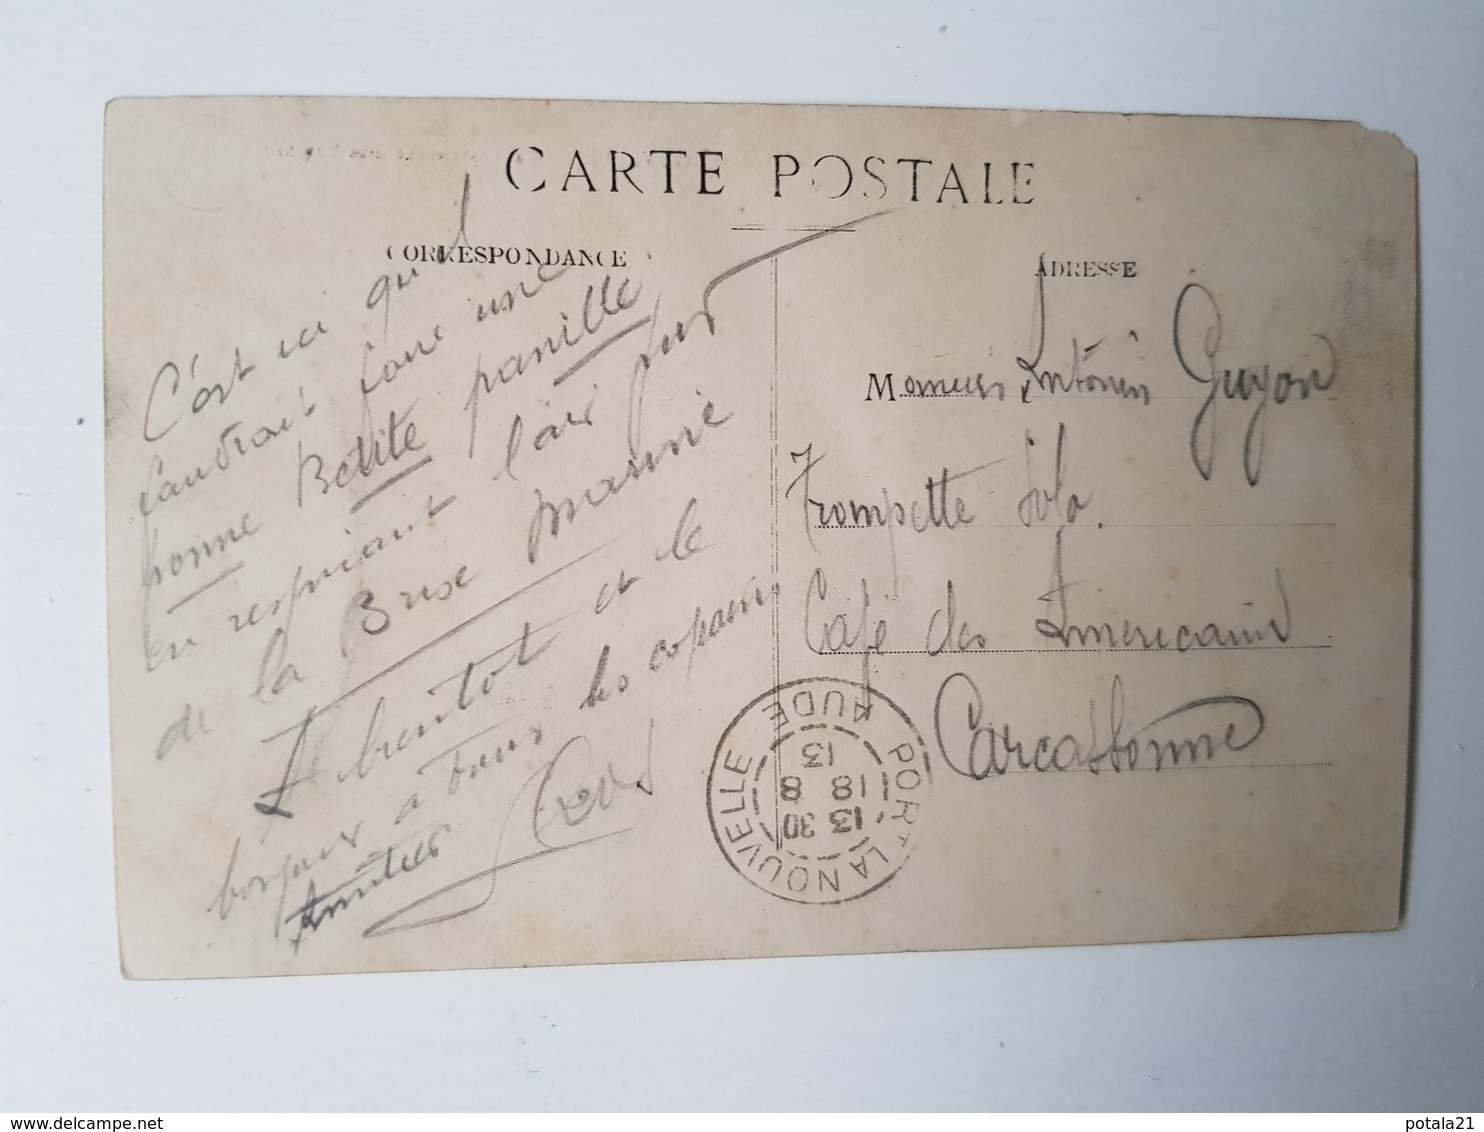 CARTE POSTALE
CORRESPONDANCE
C'est ici qu'il
faudrait faire une
bonne Petite panille
en respirant l'air pur
de la Brise marine
A bientot et le
bonjour a tous les copains
Amitiés Cros
ADRESSE
Monsieur Antonin Guyon
Trompette Solo.
Café des Americains
Carcassonne
PORT LA NOUVELLE
AUDE
13 30
18 8
13
potala21